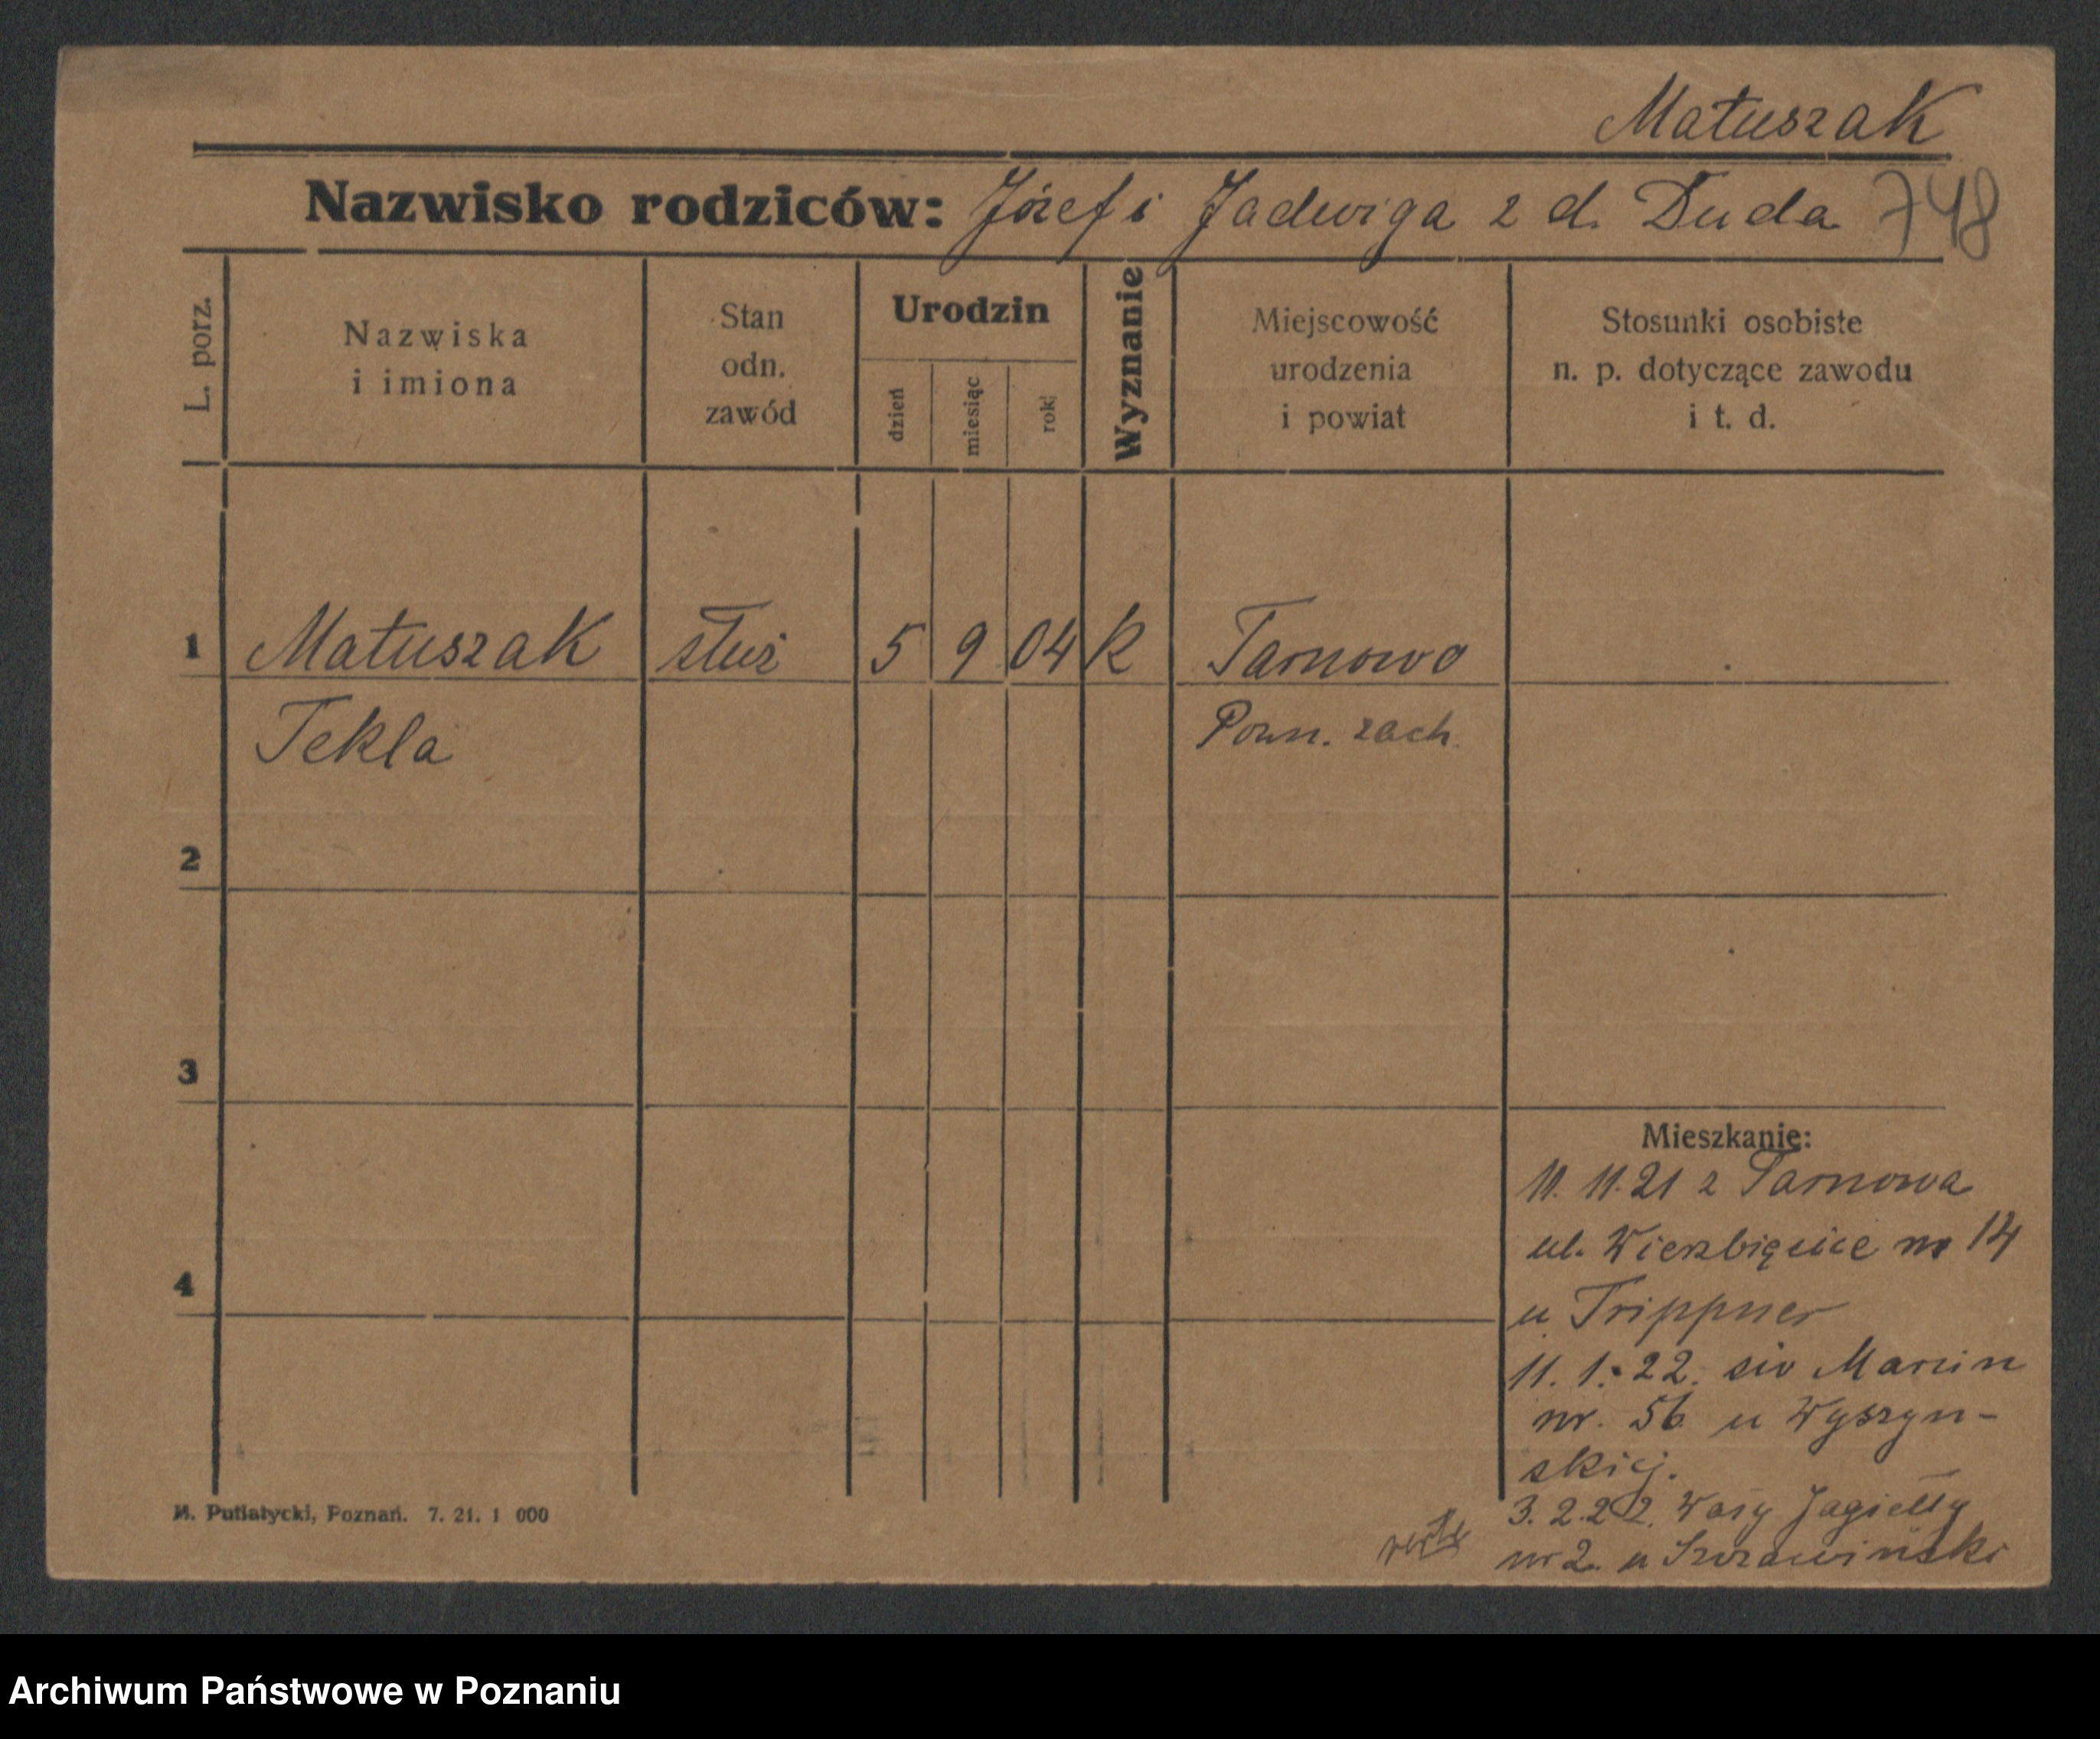 Matuszak
Nazwisko rodziców: Józef i Jadwiga z d. Duda 748
L. porz.
Nazwiska
i imiona
Stan
odn.
zawód
Urodzin
dzień
miesiąc
rok
Wyznanie
Miejscowość
urodzenia
i powiat
Stosunki osobiste
n. p. dotyczące zawodu
i t. d.
1 Matuszak służ 5 9 04 k Tarnowo
Tekla Pozn. zach.
2
3
4
Mieszkanie:
11. 11. 21 z Tarnowa
ul. Wierzbięcice nr 14
u Trippner
11. 1. 22. św Marcin
nr. 56 u Wyszyn-
skiej.
3. 2. 22. Wały Jagiełły
nr 2. u
M. Putiatycki, Poznań. 7. 21. 1 000
Archiwum Państwowe w Poznaniu